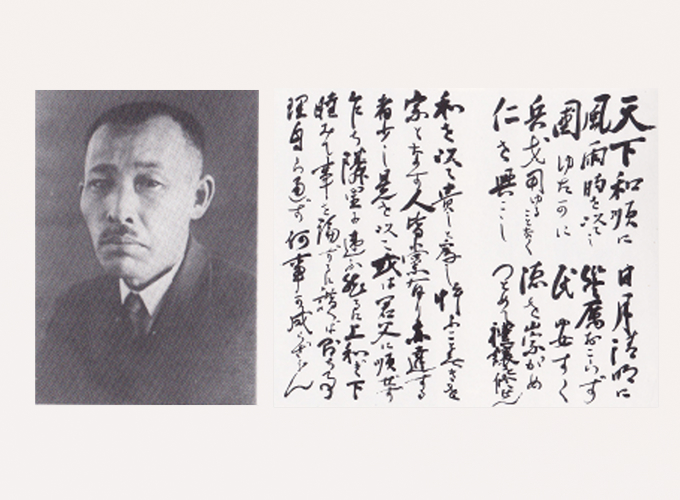 天下和順に 日月清明に
風雨時を以てし 災厲おこらず
國ゆたかに 民安すく
兵戈用ゆることなく 徳を崇がめ
仁を興こし つとめて禮譲を修
和を以て貴しと為し忤ふことなきを
宗となす人皆黨有り亦達する
者少し是を以て或は君父に順はず
乍ち隣里に違ふ然るに上和ぎ下
睦みて事を論ずるに諧へば即ち事
理自ら通ず何事か成らざらん